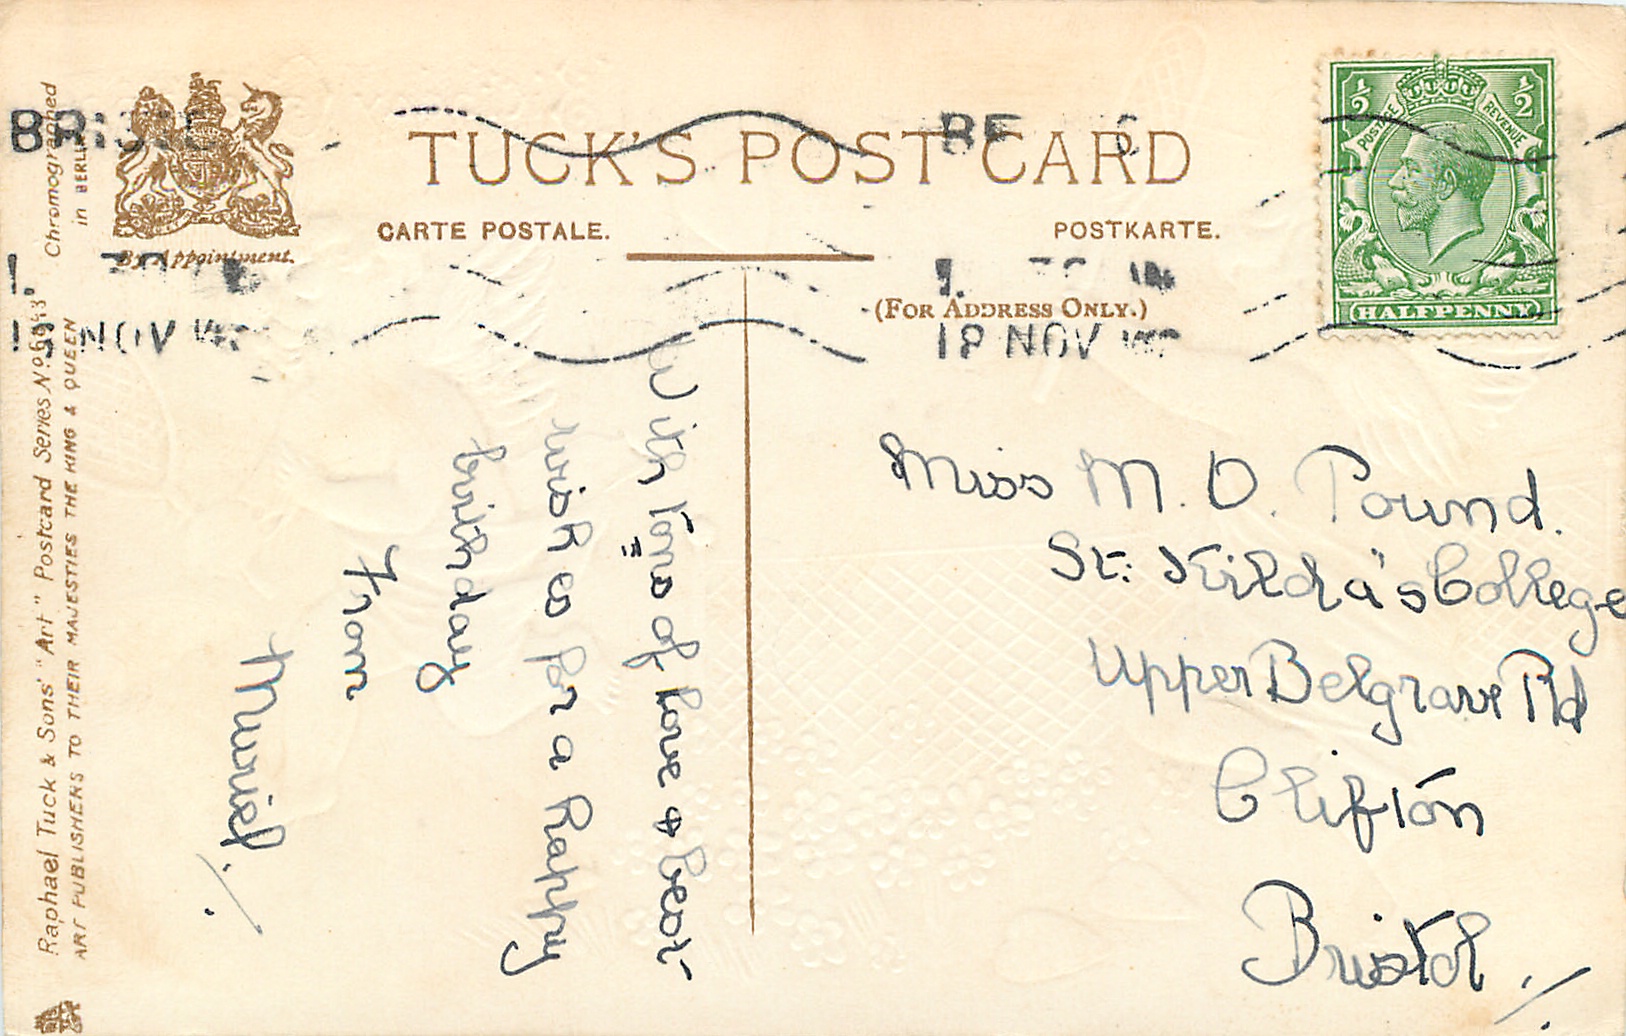 TUCK'S POST CARD
CARTE POSTALE.
POSTKARTE.
(FOR ADDRESS ONLY.)
By Appointment.
Chromographed
in BERLIN
Raphael Tuck & Sons' "Art" Postcard Series No
ART PUBLISHERS TO THEIR MAJESTIES THE KING & QUEEN
BRISTOL
18 NOV
18 NOV
POSTAGE
REVENUE
½
½
HALFPENNY
With tons of love & best
wishes for a happy
birthday
From
Muriel.
Miss M. D. Pound.
St: Kilda's College
Upper Belgrave Rd
Clifton
Bristol.